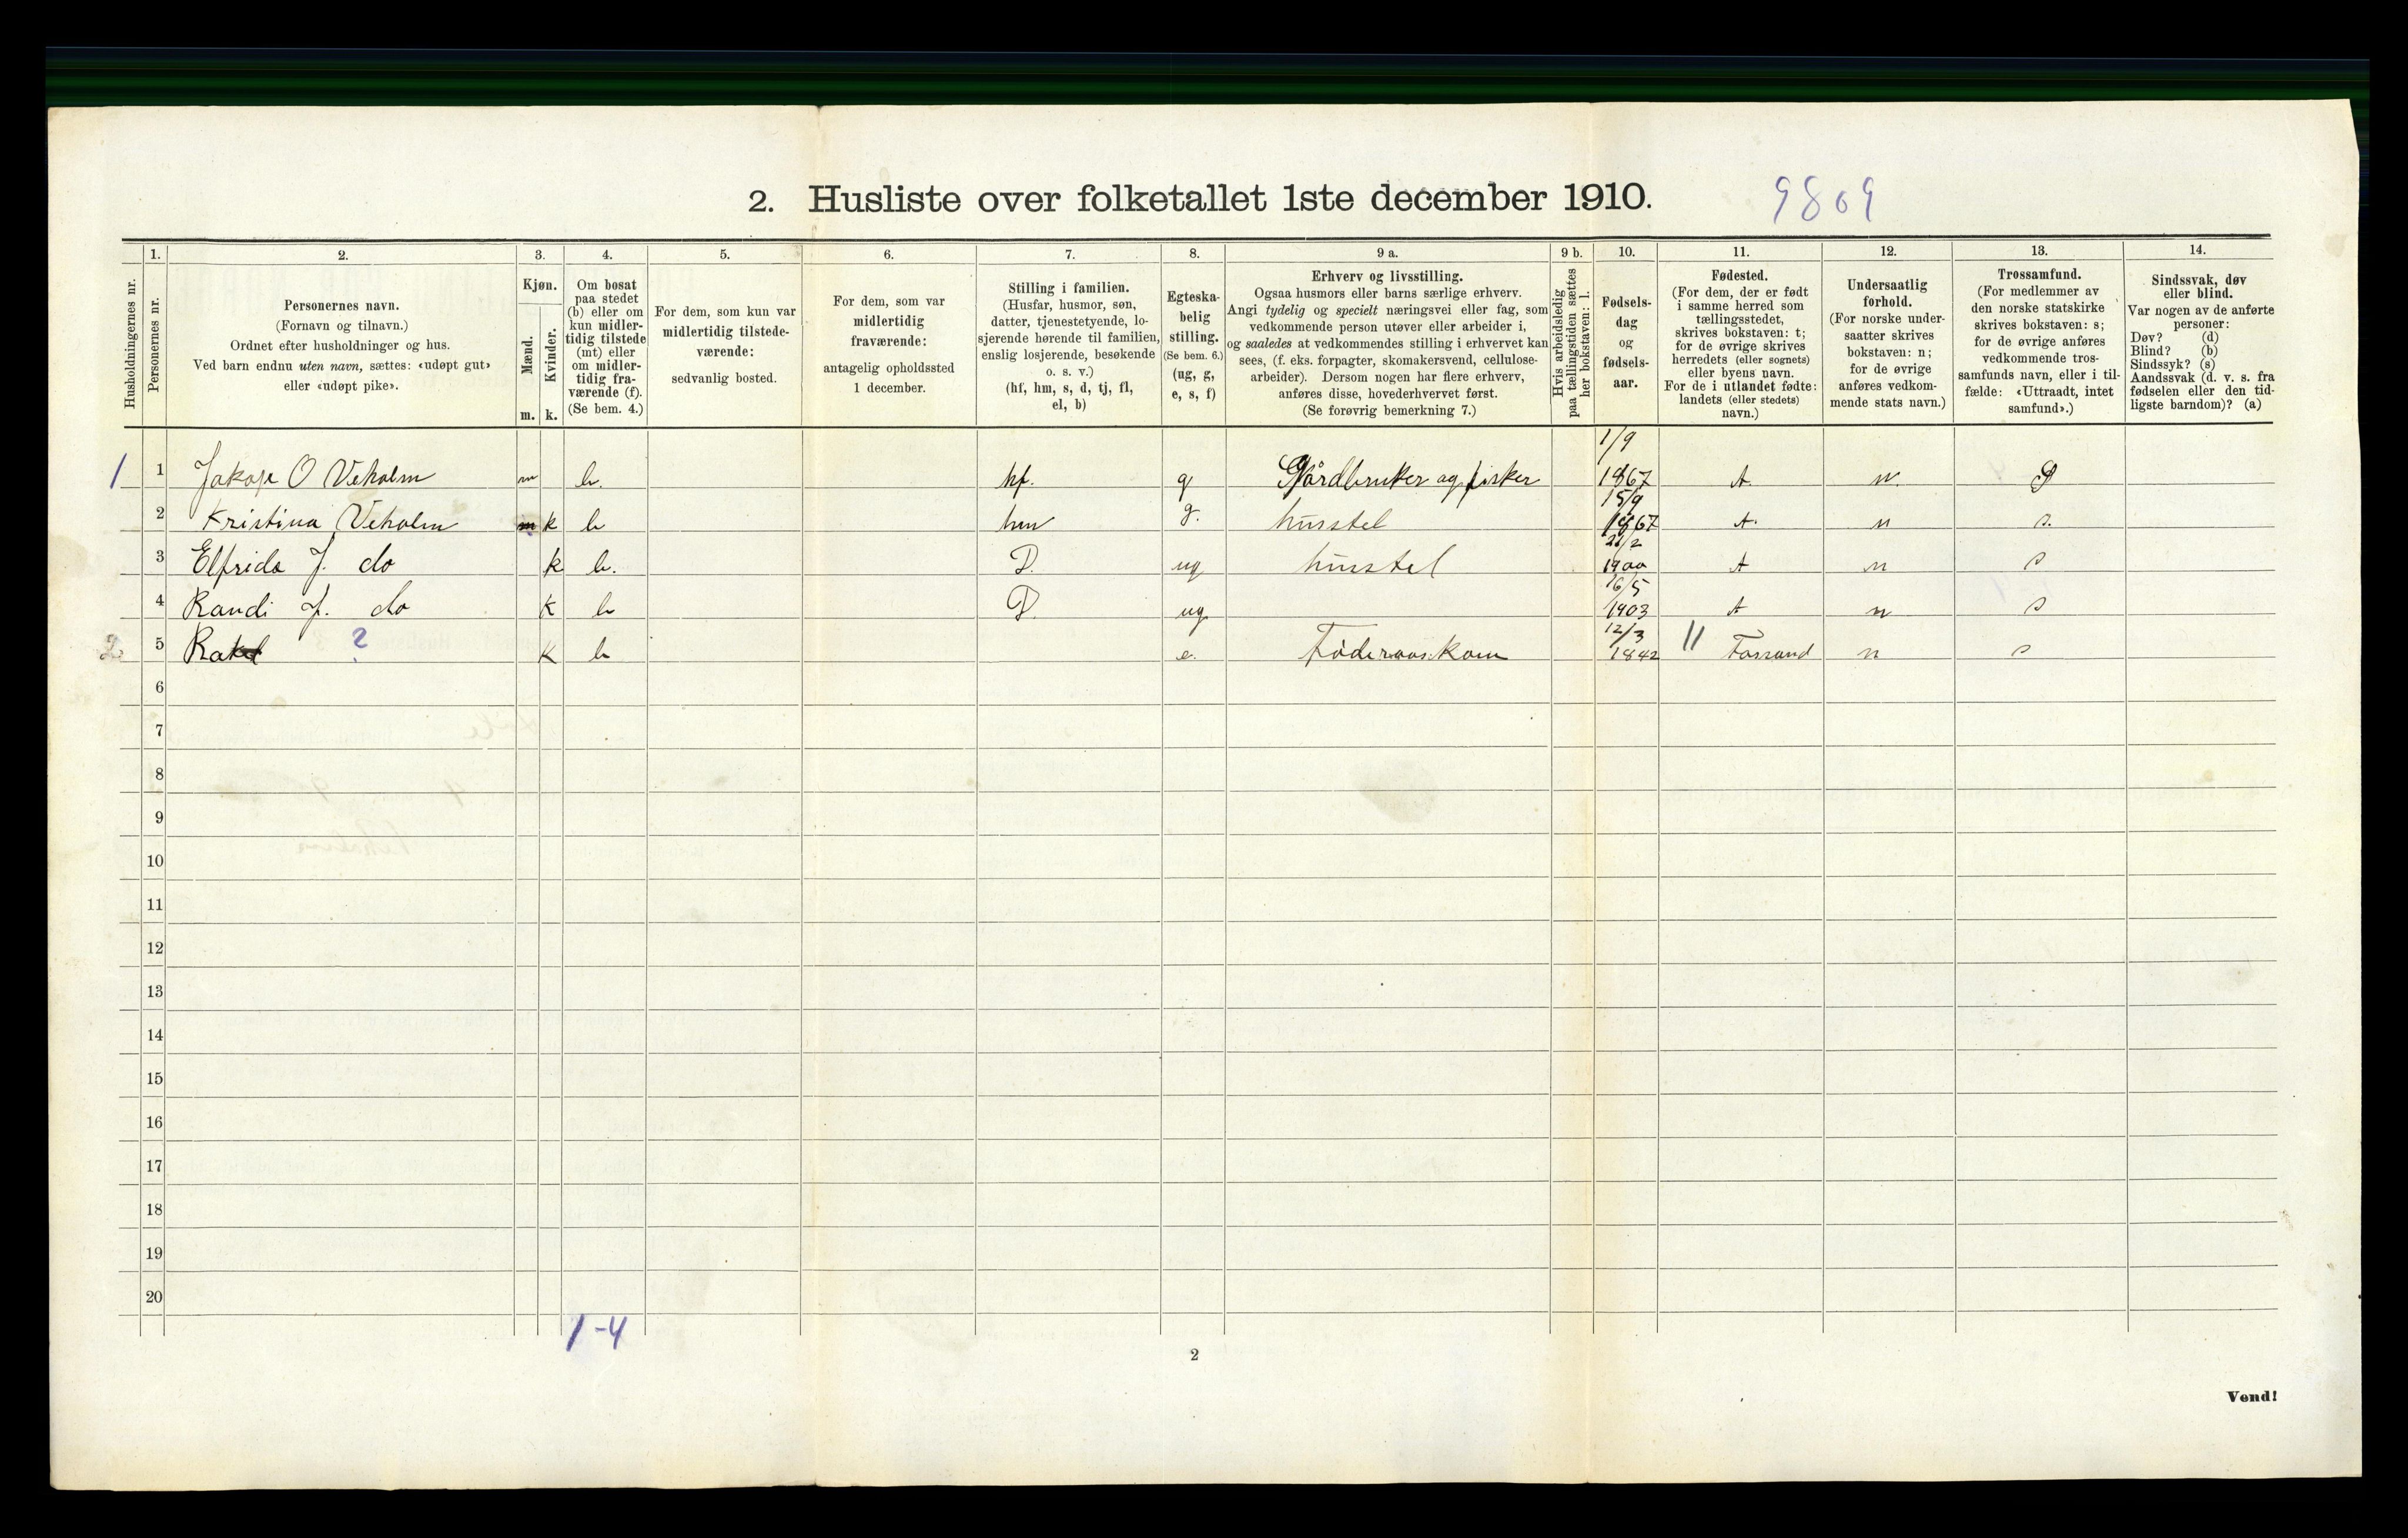 2. Husliste over folketallet 1ste december 1910. 9809
Husholdningernes nr.
1. Personernes nr.
2. Personernes navn.
(Fornavn og tilnavn.)
Ordnet efter husholdninger og hus.
Ved barn endnu uten navn, sættes: «udøpt gut»
eller «udøpt pike».
3. Kjøn.
Mænd. m.
Kvinder. k.
4. Om bosat
paa stedet
(b) eller om
kun midler-
tidig tilstede
(mt) eller
om midler-
tidig fra-
værende (f).
(Se bem. 4.)
5. For dem, som kun var
midlertidig tilstede-
værende:
sedvanlig bosted.
6. For dem, som var
midlertidig
fraværende:
antagelig opholdssted
1 december.
7. Stilling i familien.
(Husfar, husmor, søn,
datter, tjenestetyende, lo-
sjerende hørende til familien,
enslig losjerende, besøkende
o. s. v.)
(hf, hm, s, d, tj, fl,
el, b)
8. Egteska-
belig
stilling.
(Se bem. 6.)
(ug, g,
e, s, f)
9 a. Erhverv og livsstilling.
Ogsaa husmors eller barns særlige erhverv.
Angi tydelig og specielt næringsvei eller fag, som
vedkommende person utøver eller arbeider i,
og saaledes at vedkommendes stilling i erhvervet kan
sees, (f. eks. forpagter, skomakersvend, cellulose-
arbeider). Dersom nogen har flere erhverv,
anføres disse, hovederhvervet først.
(Se forøvrig bemerkning 7.)
9 b. Hvis arbeidsledig
paa tællingstiden sættes
her bokstaven: l.
10. Fødsels-
dag
og
fødsels-
aar.
11. Fødested.
(For dem, der er født
i samme herred som
tællingsstedet,
skrives bokstaven: t;
for de øvrige skrives
herredets (eller sognets)
eller byens navn.
For de i utlandet fødte:
landets (eller stedets)
navn.)
12. Undersaatlig
forhold.
(For norske under-
saatter skrives
bokstaven: n;
for de øvrige
anføres vedkom-
mende stats navn.)
13. Trossamfund.
(For medlemmer av
den norske statskirke
skrives bokstaven: s;
for de øvrige anføres
vedkommende tros-
samfunds navn, eller i til-
fælde: «Uttraadt, intet
samfund».)
14. Sindssvak, døv
eller blind.
Var nogen av de anførte
personer:
Døv? (d)
Blind? (b)
Sindssyk? (s)
Aandssvak (d. v. s. fra
fødselen eller den tid-
ligste barndom)? (a)
1 1 Jakop O Veholm m b. hf. g Gårdbruker og fisker 1/9 1867 t. n. S
2 Kristina Veholm k b hm g. husstel 15/9 1867 t. n s.
3 Elfrida J. do k b. D. ug husstel /2 1900 t n s
4 Randi J. do k b D. ug 16/5 1903 t n s
2 5 ? k b e. Føderaaskone 12/3 1842 11 Fossand n s
6
7
8
9
10
11
12
13
14
15
16
17
18
19
20
1-4
2
Vend!